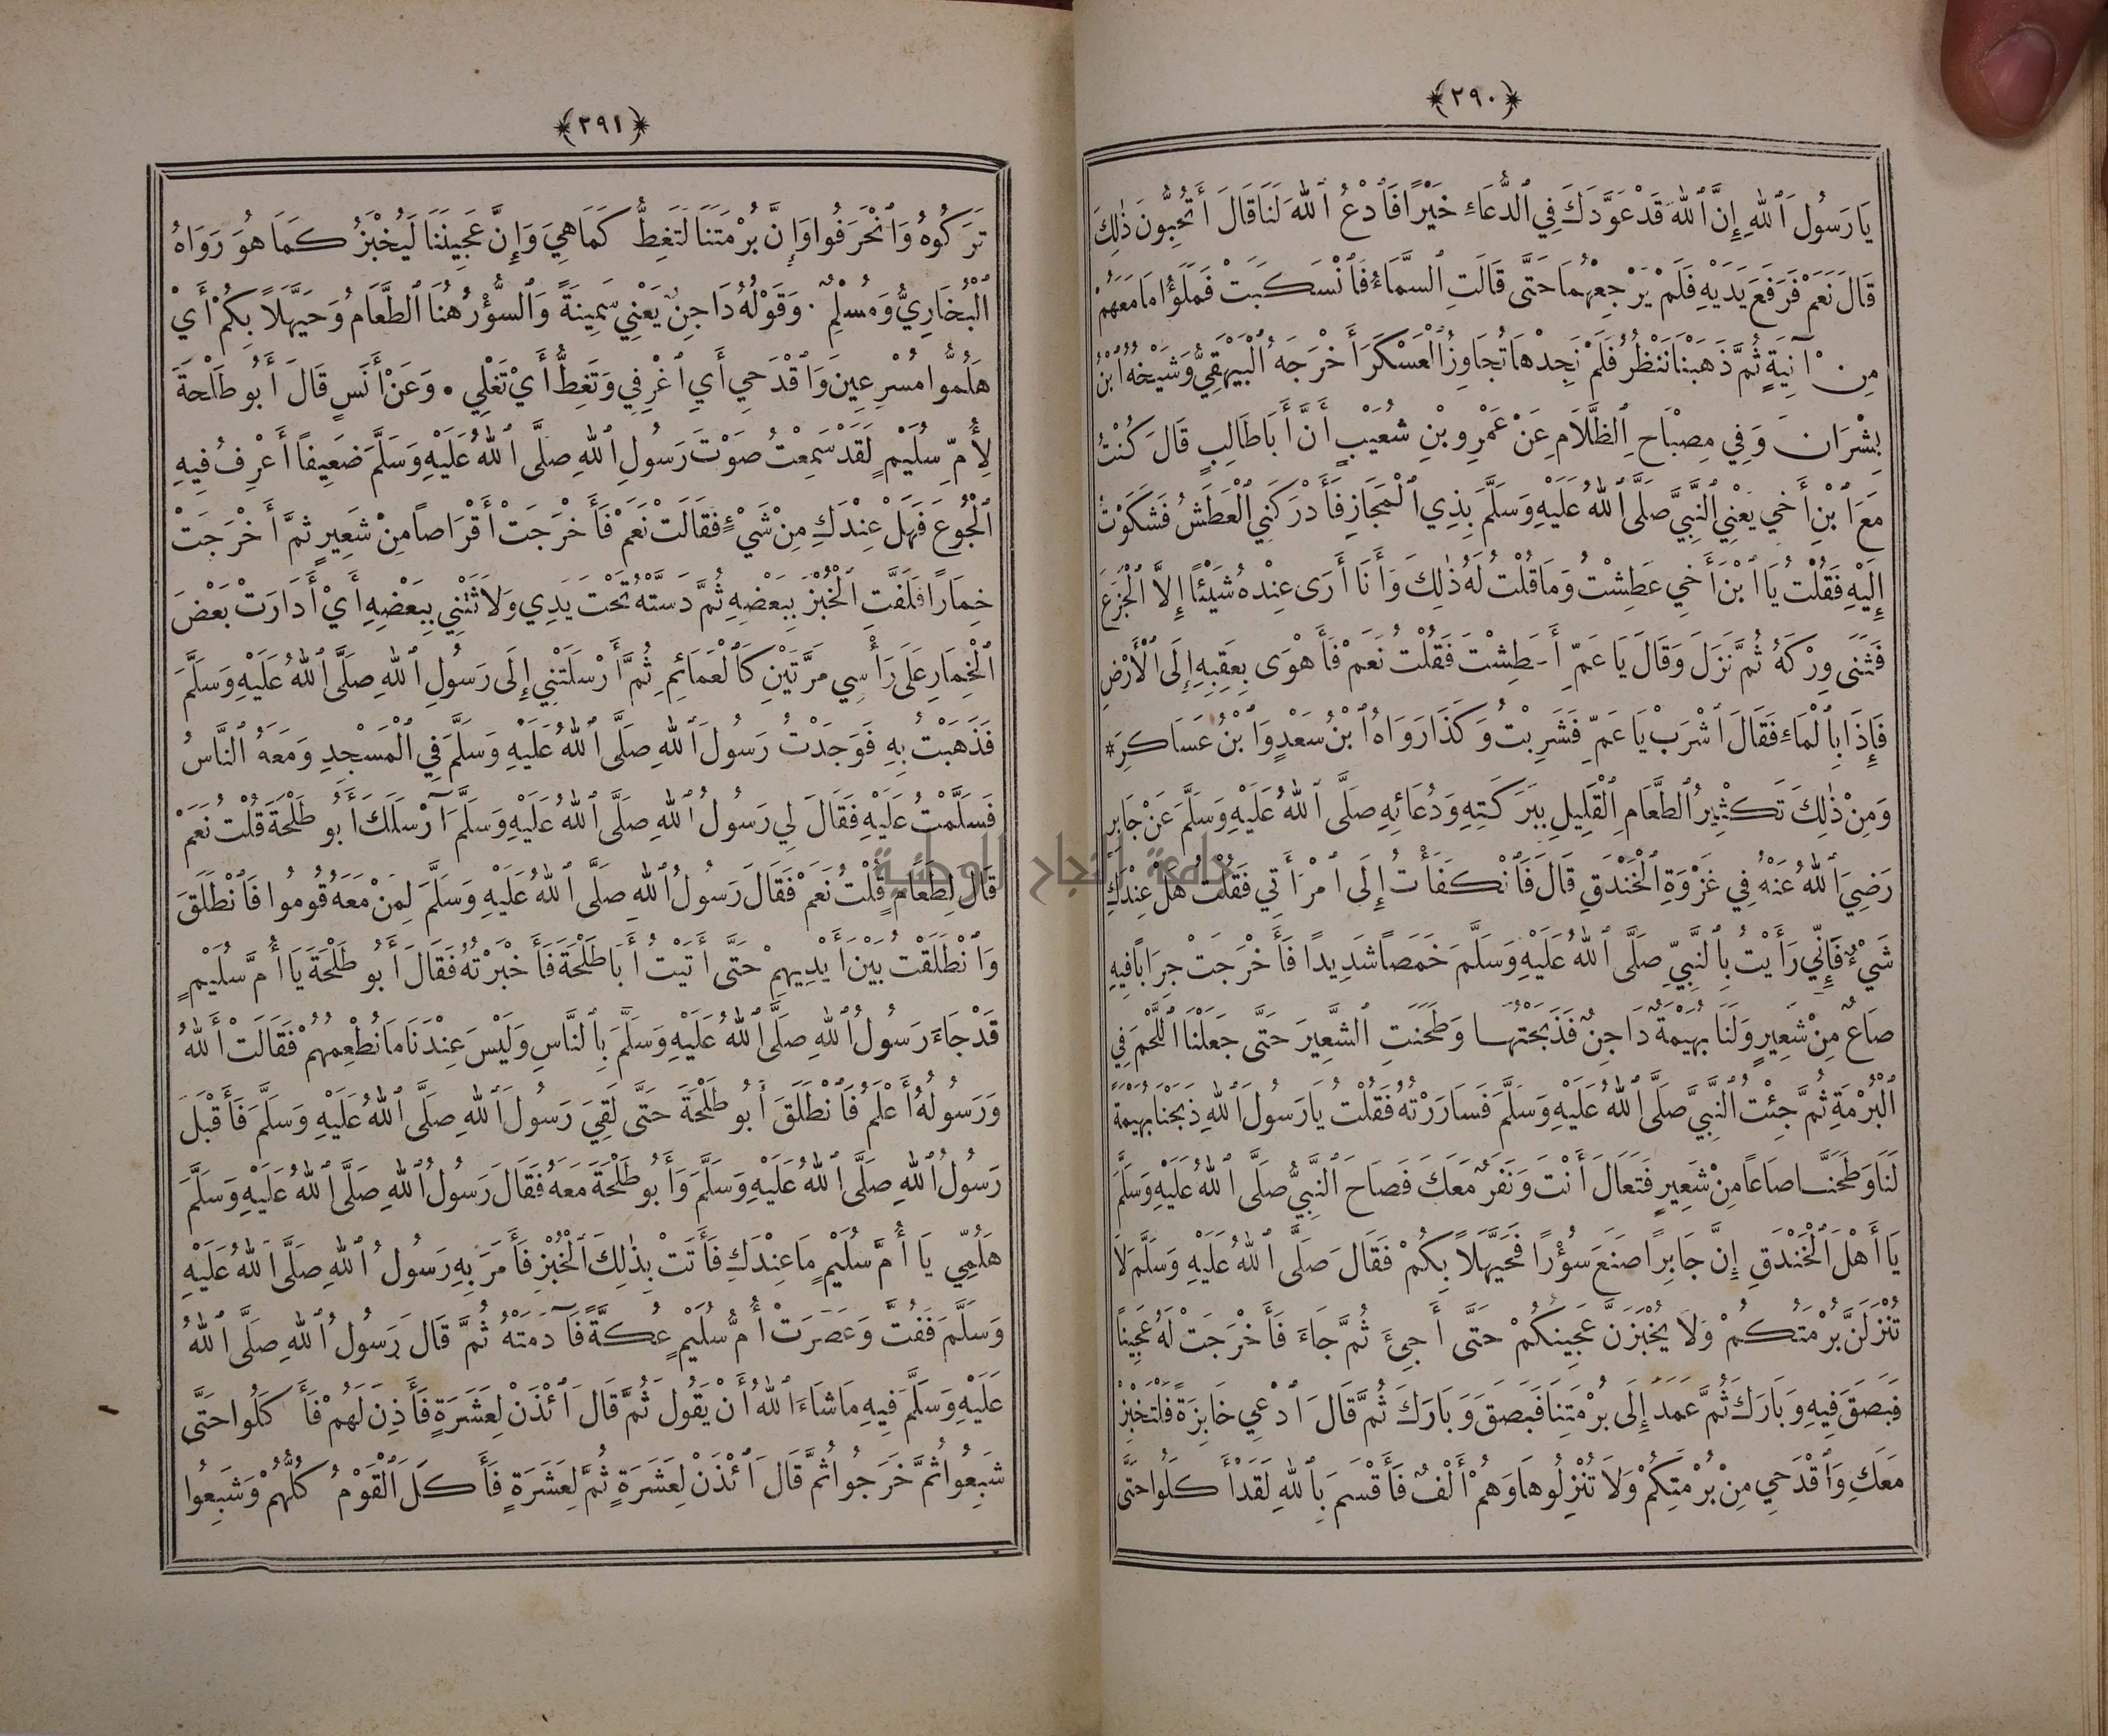 ﴿٢٩٠﴾
يَا رَسُولَ ٱللهِ إِنَّ ٱللهَ قَدْ عَوَّدَكَ فِي ٱلدُّعَاءِ خَيْرًا فَٱدْعُ ٱللهَ لَنَا قَالَ أَتُحِبُّونَ ذٰلِكَ
قَالَ نَعَمْ فَرَفَعَ يَدَيْهِ فَلَمْ يَرْجِعْهُمَا حَتَّى قَالَتِ ٱلسَّمَاءُ فَٱنْسَكَبَتْ فَمَلَؤُا مَا مَعَهُمْ
مِنْ آنِيَةٍ ثُمَّ ذَهَبْنَا نَنْظُرُ فَلَمْ نَجِدْهَا تُجَاوِزُ ٱلْعَسْكَرَ أَخْرَجَهُ ٱلْبَيْهَقِيُّ وَشَيْخُهُ ٱبْنُ
بِشْرَانَ وَفِي مِصْبَاحِ ٱلظَّلَامِ عَنْ عَمْرِو بْنِ شُعَيْبٍ أَنَّ أَبَا طَالِبٍ قَالَ كُنْتُ
مَعَ ٱبْنِ أَخِي يَعْنِي ٱلنَّبِيَّ صَلَّى ٱللهُ عَلَيْهِ وَسَلَّمَ بِذِي ٱلْمَجَازِ فَأَدْرَكَنِي ٱلْعَطَشُ فَشَكَوْتُ
إِلَيْهِ فَقُلْتُ يَا ٱبْنَ أَخِي عَطِشْتُ وَمَا قُلْتُ لَهُ ذٰلِكَ وَأَنَا أَرَى عِنْدَهُ شَيْئًا إِلَّا ٱلْجَزَعَ
فَثَنَى وِرْكَهُ ثُمَّ نَزَلَ وَقَالَ يَا عَمِّ أَعَطِشْتَ فَقُلْتُ نَعَمْ فَأَهْوَى بِعَقِبِهِ إِلَى ٱلْأَرْضِ
فَإِذَا بِٱلْمَاءِ فَقَالَ ٱشْرَبْ يَا عَمِّ فَشَرِبْتُ وَكَذَا رَوَاهُ ٱبْنُ سَعْدٍ وَٱبْنُ عَسَاكِرَ *
وَمِنْ ذٰلِكَ تَكْثِيرُ ٱلطَّعَامِ ٱلْقَلِيلِ بِبَرَكَتِهِ وَدُعَائِهِ صَلَّى ٱللهُ عَلَيْهِ وَسَلَّمَ عَنْ جَابِرٍ
رَضِيَ ٱللهُ عَنْهُ فِي غَزْوَةِ ٱلْخَنْدَقِ قَالَ فَٱنْكَفَأْتُ إِلَى ٱمْرَأَتِي فَقُلْتُ هَلْ عِنْدَكِ
شَيْءٌ فَإِنِّي رَأَيْتُ بِٱلنَّبِيِّ صَلَّى ٱللهُ عَلَيْهِ وَسَلَّمَ خَمَصاً شَدِيدًا فَأَخْرَجَتْ جِرَابًا فِيهِ
صَاعٌ مِنْ شَعِيرٍ وَلَنَا بُهَيْمَةٌ دَاجِنٌ فَذَبَحْتُهَا وَطَحَنَتِ ٱلشَّعِيرَ حَتَّى جَعَلْنَا ٱللَّحْمَ فِي
ٱلْبُرْمَةِ ثُمَّ جِئْتُ ٱلنَّبِيَّ صَلَّى ٱللهُ عَلَيْهِ وَسَلَّمَ فَسَارَرْتُهُ فَقُلْتُ يَا رَسُولَ ٱللهِ ذَبَحْنَا بُهَيْمَةً
لَنَا وَطَحَنَّا صَاعًا مِنْ شَعِيرٍ فَتَعَالَ أَنْتَ وَنَفَرٌ مَعَكَ فَصَاحَ ٱلنَّبِيُّ صَلَّى ٱللهُ عَلَيْهِ وَسَلَّمَ
يَا أَهْلَ ٱلْخَنْدَقِ إِنَّ جَابِرًا صَنَعَ سُؤْرًا فَحَيَّهَلًا بِكُمْ فَقَالَ صَلَّى ٱللهُ عَلَيْهِ وَسَلَّمَ لَا
تُنْزِلُنَّ بُرْمَتَكُمْ وَلَا يُخْبَزَنَّ عَجِينُكُمْ حَتَّى أَجِيءَ ثُمَّ جَاءَ فَأَخْرَجَتْ لَهُ عَجِينًا
فَبَصَقَ فِيهِ وَبَارَكَ ثُمَّ عَمَدَ إِلَى بُرْمَتِنَا فَبَصَقَ وَبَارَكَ ثُمَّ قَالَ ٱدْعِي خَابِزَةً فَلْتَخْبِزْ
مَعَكِ وَٱقْدَحِي مِنْ بُرْمَتِكُمْ وَلَا تُنْزِلُوهَا وَهُمْ أَلْفٌ فَأُقْسِمُ بِٱللهِ لَقَدْ أَكَلُوا حَتَّى
﴿٢٩١﴾
تَرَكُوهُ وَٱنْحَرَفُوا وَإِنَّ بُرْمَتَنَا لَتَغِطُّ كَمَا هِيَ وَإِنَّ عَجِينَنَا لَيُخْبَزُ كَمَا هُوَ رَوَاهُ
ٱلْبُخَارِيُّ وَمُسْلِمٌ . وَقَوْلُهُ دَاجِنٌ يَعْنِي سَمِينَةً وَٱلسُّؤْرُ هُنَا ٱلطَّعَامُ وَحَيَّهَلًا بِكُمْ أَيْ
هَلُمُّوا مُسْرِعِينَ وَٱقْدَحِي أَيِ ٱغْرِفِي وَتَغِطُّ أَيْ تَغْلِي . وَعَنْ أَنَسٍ قَالَ أَبُو طَلْحَةَ
لِأُمِّ سُلَيْمٍ لَقَدْ سَمِعْتُ صَوْتَ رَسُولِ ٱللهِ صَلَّى ٱللهُ عَلَيْهِ وَسَلَّمَ ضَعِيفًا أَعْرِفُ فِيهِ
ٱلْجُوعَ فَهَلْ عِنْدَكِ مِنْ شَيْءٍ فَقَالَتْ نَعَمْ فَأَخْرَجَتْ أَقْرَاصاً مِنْ شَعِيرٍ ثُمَّ أَخْرَجَتْ
خِمَارًا فَلَفَّتِ ٱلْخُبْزَ بِبَعْضِهِ ثُمَّ دَسَّتْهُ تَحْتَ يَدِي وَلَاثَتْنِي بِبَعْضِهِ أَيْ أَدَارَتْ بَعْضَ
ٱلْخِمَارِ عَلَى رَأْسِي مَرَّتَيْنِ كَٱلْعَمَائِمِ ثُمَّ أَرْسَلَتْنِي إِلَى رَسُولِ ٱللهِ صَلَّى ٱللهُ عَلَيْهِ وَسَلَّمَ
فَذَهَبْتُ بِهِ فَوَجَدْتُ رَسُولَ ٱللهِ صَلَّى ٱللهُ عَلَيْهِ وَسَلَّمَ فِي ٱلْمَسْجِدِ وَمَعَهُ ٱلنَّاسُ
فَسَلَّمْتُ عَلَيْهِ فَقَالَ لِي رَسُولُ ٱللهِ صَلَّى ٱللهُ عَلَيْهِ وَسَلَّمَ آرْسَلَكَ أَبُو طَلْحَةَ قُلْتُ نَعَمْ
قَالَ لِطَعَامٍ قُلْتُ نَعَمْ فَقَالَ رَسُولُ ٱللهِ صَلَّى ٱللهُ عَلَيْهِ وَسَلَّمَ لِمَنْ مَعَهُ قُومُوا فَٱنْطَلَقَ
وَٱنْطَلَقْتُ بَيْنَ أَيْدِيهِمْ حَتَّى أَتَيْتُ أَبَا طَلْحَةَ فَأَخْبَرْتُهُ فَقَالَ أَبُو طَلْحَةَ يَا أُمَّ سُلَيْمٍ
قَدْ جَاءَ رَسُولُ ٱللهِ صَلَّى ٱللهُ عَلَيْهِ وَسَلَّمَ بِٱلنَّاسِ وَلَيْسَ عِنْدَنَا مَا نُطْعِمُهُمْ فَقَالَتْ أَللهُ
وَرَسُولُهُ أَعْلَمُ فَٱنْطَلَقَ أَبُو طَلْحَةَ حَتَّى لَقِيَ رَسُولَ ٱللهِ صَلَّى ٱللهُ عَلَيْهِ وَسَلَّمَ فَأَقْبَلَ
رَسُولُ ٱللهِ صَلَّى ٱللهُ عَلَيْهِ وَسَلَّمَ وَأَبُو طَلْحَةَ مَعَهُ فَقَالَ رَسُولُ ٱللهِ صَلَّى ٱللهُ عَلَيْهِ وَسَلَّمَ
هَلُمِّي يَا أُمَّ سُلَيْمٍ مَا عِنْدَكِ فَأَتَتْ بِذٰلِكَ ٱلْخُبْزِ فَأَمَرَ بِهِ رَسُولُ ٱللهِ صَلَّى ٱللهُ عَلَيْهِ
وَسَلَّمَ فَفُتَّ وَعَصَرَتْ أُمُّ سُلَيْمٍ عُكَّةً فَآدَمَتْهُ ثُمَّ قَالَ رَسُولُ ٱللهِ صَلَّى ٱللهُ
عَلَيْهِ وَسَلَّمَ فِيهِ مَا شَاءَ ٱللهُ أَنْ يَقُولَ ثُمَّ قَالَ ٱئْذَنْ لِعَشَرَةٍ فَأَذِنَ لَهُمْ فَأَكَلُوا حَتَّى
شَبِعُوا ثُمَّ خَرَجُوا ثُمَّ قَالَ ٱئْذَنْ لِعَشَرَةٍ ثُمَّ لِعَشَرَةٍ فَأَكَلَ ٱلْقَوْمُ كُلُّهُمْ وَشَبِعُوا
جامعة النجاح الوطنية